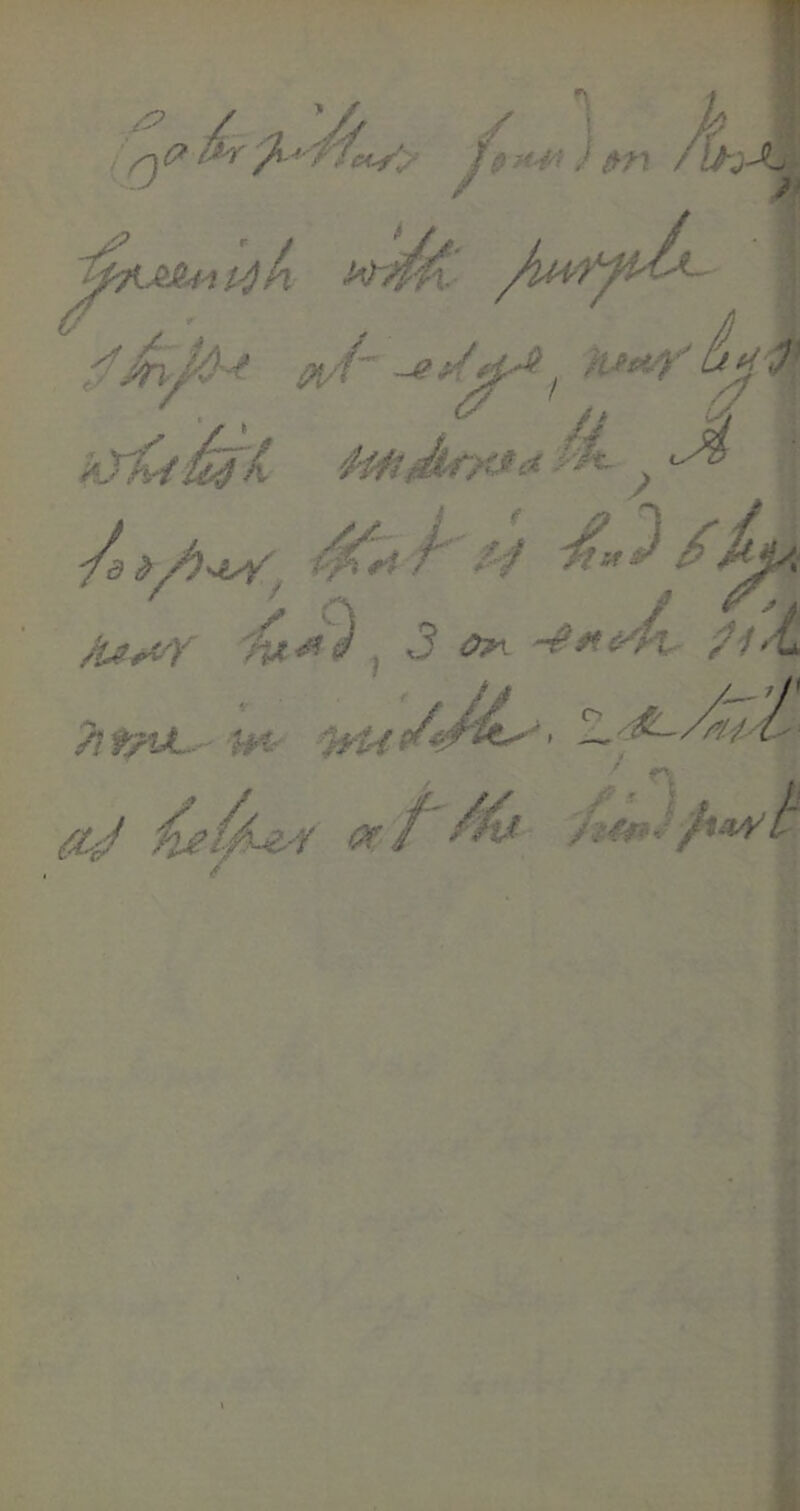 Caterpillar found on Rose
greenish with purple
stripe at edge, near legs
whitish underneath, A
looper, that is had 6 legs
near head, 3 on each side
none in middle. 2 at tail
as helper at the hind part